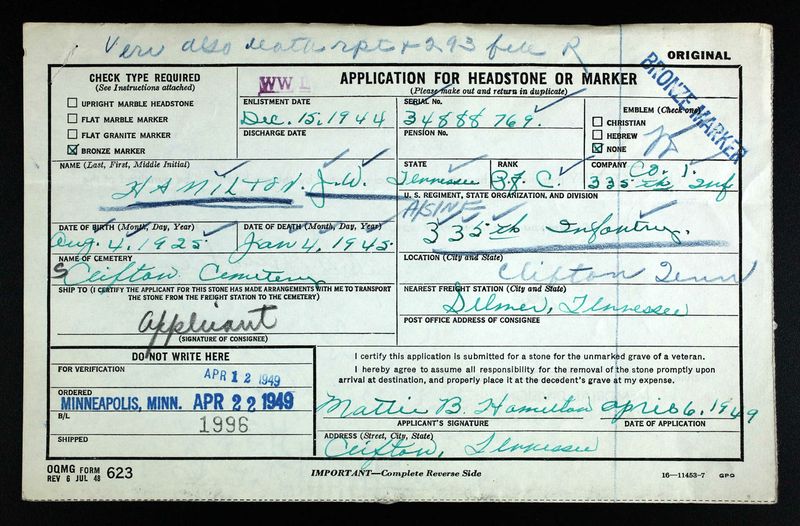 Veri also death rpt + 293 file R
ORIGINAL
CHECK TYPE REQUIRED
(See Instructions attached)
UPRIGHT MARBLE HEADSTONE
FLAT MARBLE MARKER
FLAT GRANITE MARKER
BRONZE MARKER
WW
APPLICATION FOR HEADSTONE OR MARKER
(Please make out and return in duplicate)
ENLISTMENT DATE
Dec. 15, 1944
DISCHARGE DATE
SERIAL No.
34888769.
PENSION No.
EMBLEM (Check one)
CHRISTIAN
HEBREW
NONE
BRONZE MARKER
NAME (Last, First, Middle Initial)
HAMILTON. J.W.
STATE
Tennessee
RANK
P.F.C.
COMPANY
Co. I.
335th Inf
U. S. REGIMENT, STATE ORGANIZATION, AND DIVISION
A/SINF
335th Infantry.
DATE OF BIRTH (Month, Day, Year)
Aug. 4, 1925
DATE OF DEATH (Month, Day, Year)
Jan 4, 1945.
NAME OF CEMETERY
Clifton Cemetery
LOCATION (City and State)
Clifton Tenn
SHIP TO (I CERTIFY THE APPLICANT FOR THIS STONE HAS MADE ARRANGEMENTS WITH ME TO TRANSPORT
THE STONE FROM THE FREIGHT STATION TO THE CEMETERY)
Applicant
(SIGNATURE OF CONSIGNEE)
NEAREST FREIGHT STATION (City and State)
Selmer, Tennessee
POST OFFICE ADDRESS OF CONSIGNEE
DO NOT WRITE HERE
FOR VERIFICATION
APR 12 1949
ORDERED
MINNEAPOLIS, MINN. APR 22 1949
B/L
1996
SHIPPED
I certify this application is submitted for a stone for the unmarked grave of a veteran.
I hereby agree to assume all responsibility for the removal of the stone promptly upon
arrival at destination, and properly place it at the decedent's grave at my expense.
Mattie B. Hamilton April 6, 1949
APPLICANT'S SIGNATURE
DATE OF APPLICATION
ADDRESS (Street, City, State)
Clifton, Tennessee
OQMG FORM 623
REV 6 JUL 48
IMPORTANT—Complete Reverse Side
16—11453-7 GPO